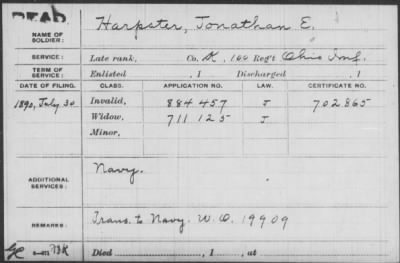 DEAD.
NAME OF SOLDIER: Harpster, Jonathan E.
SERVICE: Late rank, Co. K, 166 Reg't Ohio Inf.
TERM OF SERVICE: Enlisted , 1 Discharged , 1
DATE OF FILING. CLASS. APPLICATION NO. LAW. CERTIFICATE NO.
1890, July 30 Invalid, 884457 J 702865
Widow, 711125 J
Minor,
ADDITIONAL SERVICES: Navy.
REMARKS: Trans. to Navy. W.O. 19909
Died , 1 , at